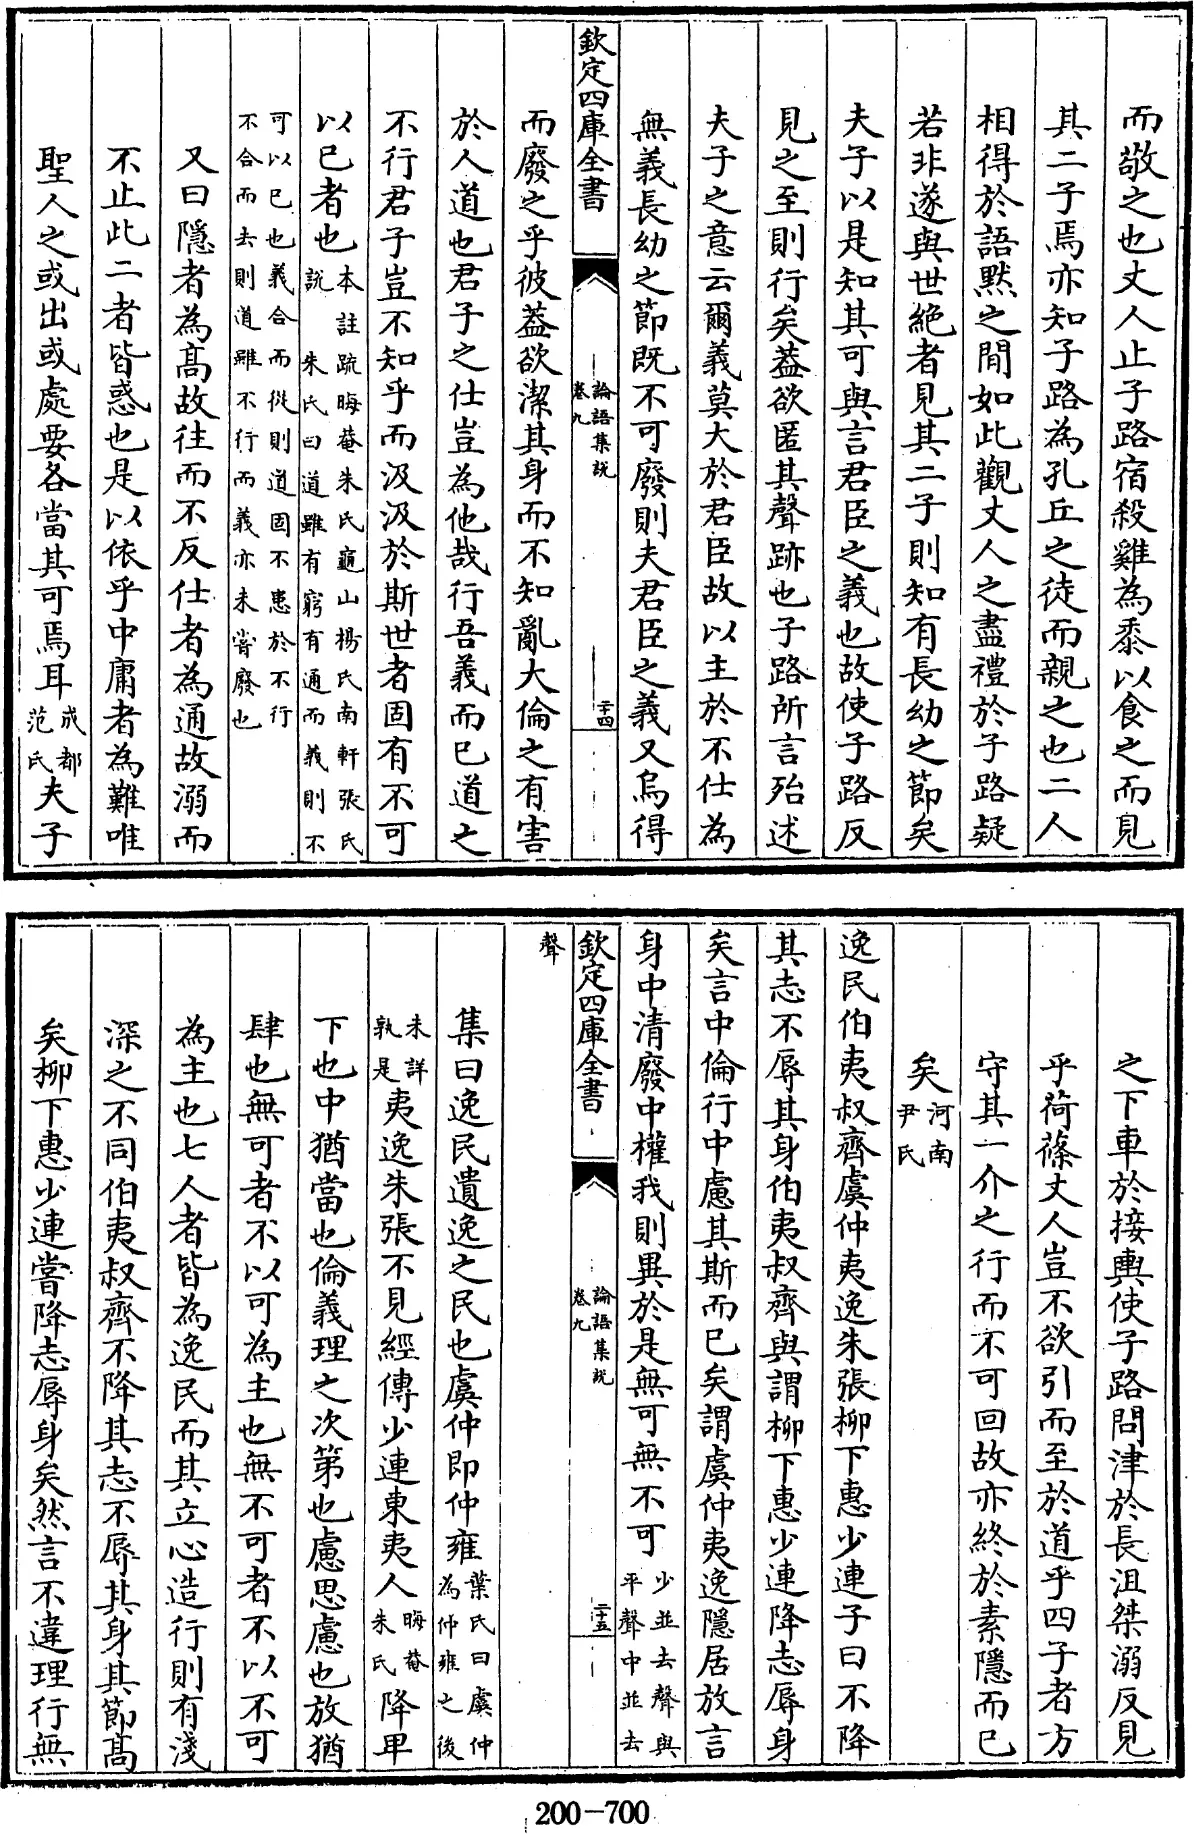 而敬之也丈人止子路宿殺雞為黍以食之而見
其二子焉亦知子路為孔丘之徒而親之也二人
相得於語黙之間如此觀丈人之盡禮於子路疑
若非遂與世絶者見其二子則知有長幼之節矣
夫子以是知其可與言君臣之義也故使子路反
見之至則行矣葢欲匿其聲跡也子路所言殆述
夫子之意云爾義莫大於君臣故以主於不仕為
無義長幼之節既不可廢則夫君臣之義又烏得
欽定四庫全書
論語集説
卷九
二十四
而廢之乎彼葢欲潔其身而不知亂大倫之有害
於人道也君子之仕豈為他哉行吾義而已道之
不行君子豈不知乎而汲汲於斯世者固有不可
以已者也本註疏晦菴朱氏龜山楊氏南軒張氏
説 朱氏曰道雖有窮有通而義則不
可以已也義合而從則道固不患於不行
不合而去則道雖不行而義亦未嘗廢也
又曰隱者為髙故往而不反仕者為通故溺而
不止此二者皆惑也是以依乎中庸者為難唯
聖人之或出或處要各當其可焉耳成都
范氏夫子
之下車於接輿使子路問津於長沮桀溺反見
乎荷蓧丈人豈不欲引而至於道乎四子者方
守其一介之行而不可回故亦終於素隱而已
矣河南
尹氏
逸民伯夷叔齊虞仲夷逸朱張柳下惠少連子曰不降
其志不辱其身伯夷叔齊與謂柳下惠少連降志辱身
矣言中倫行中慮其斯而已矣謂虞仲夷逸隱居放言
身中清廢中權我則異於是無可無不可少並去聲與
平聲中並去
聲
欽定四庫全書
論語集説
卷九
二十五
集曰逸民遺逸之民也虞仲即仲雍葉氏曰虞仲
為仲雍之後
未詳
孰是夷逸朱張不見經傳少連東夷人晦菴
朱氏降卑
下也中猶當也倫義理之次第也慮思慮也放猶
肆也無可者不以可為主也無不可者不以不可
為主也七人者皆為逸民而其立心造行則有淺
深之不同伯夷叔齊不降其志不辱其身其節髙
矣柳下惠少連嘗降志辱身矣然言不違理行無
200-700